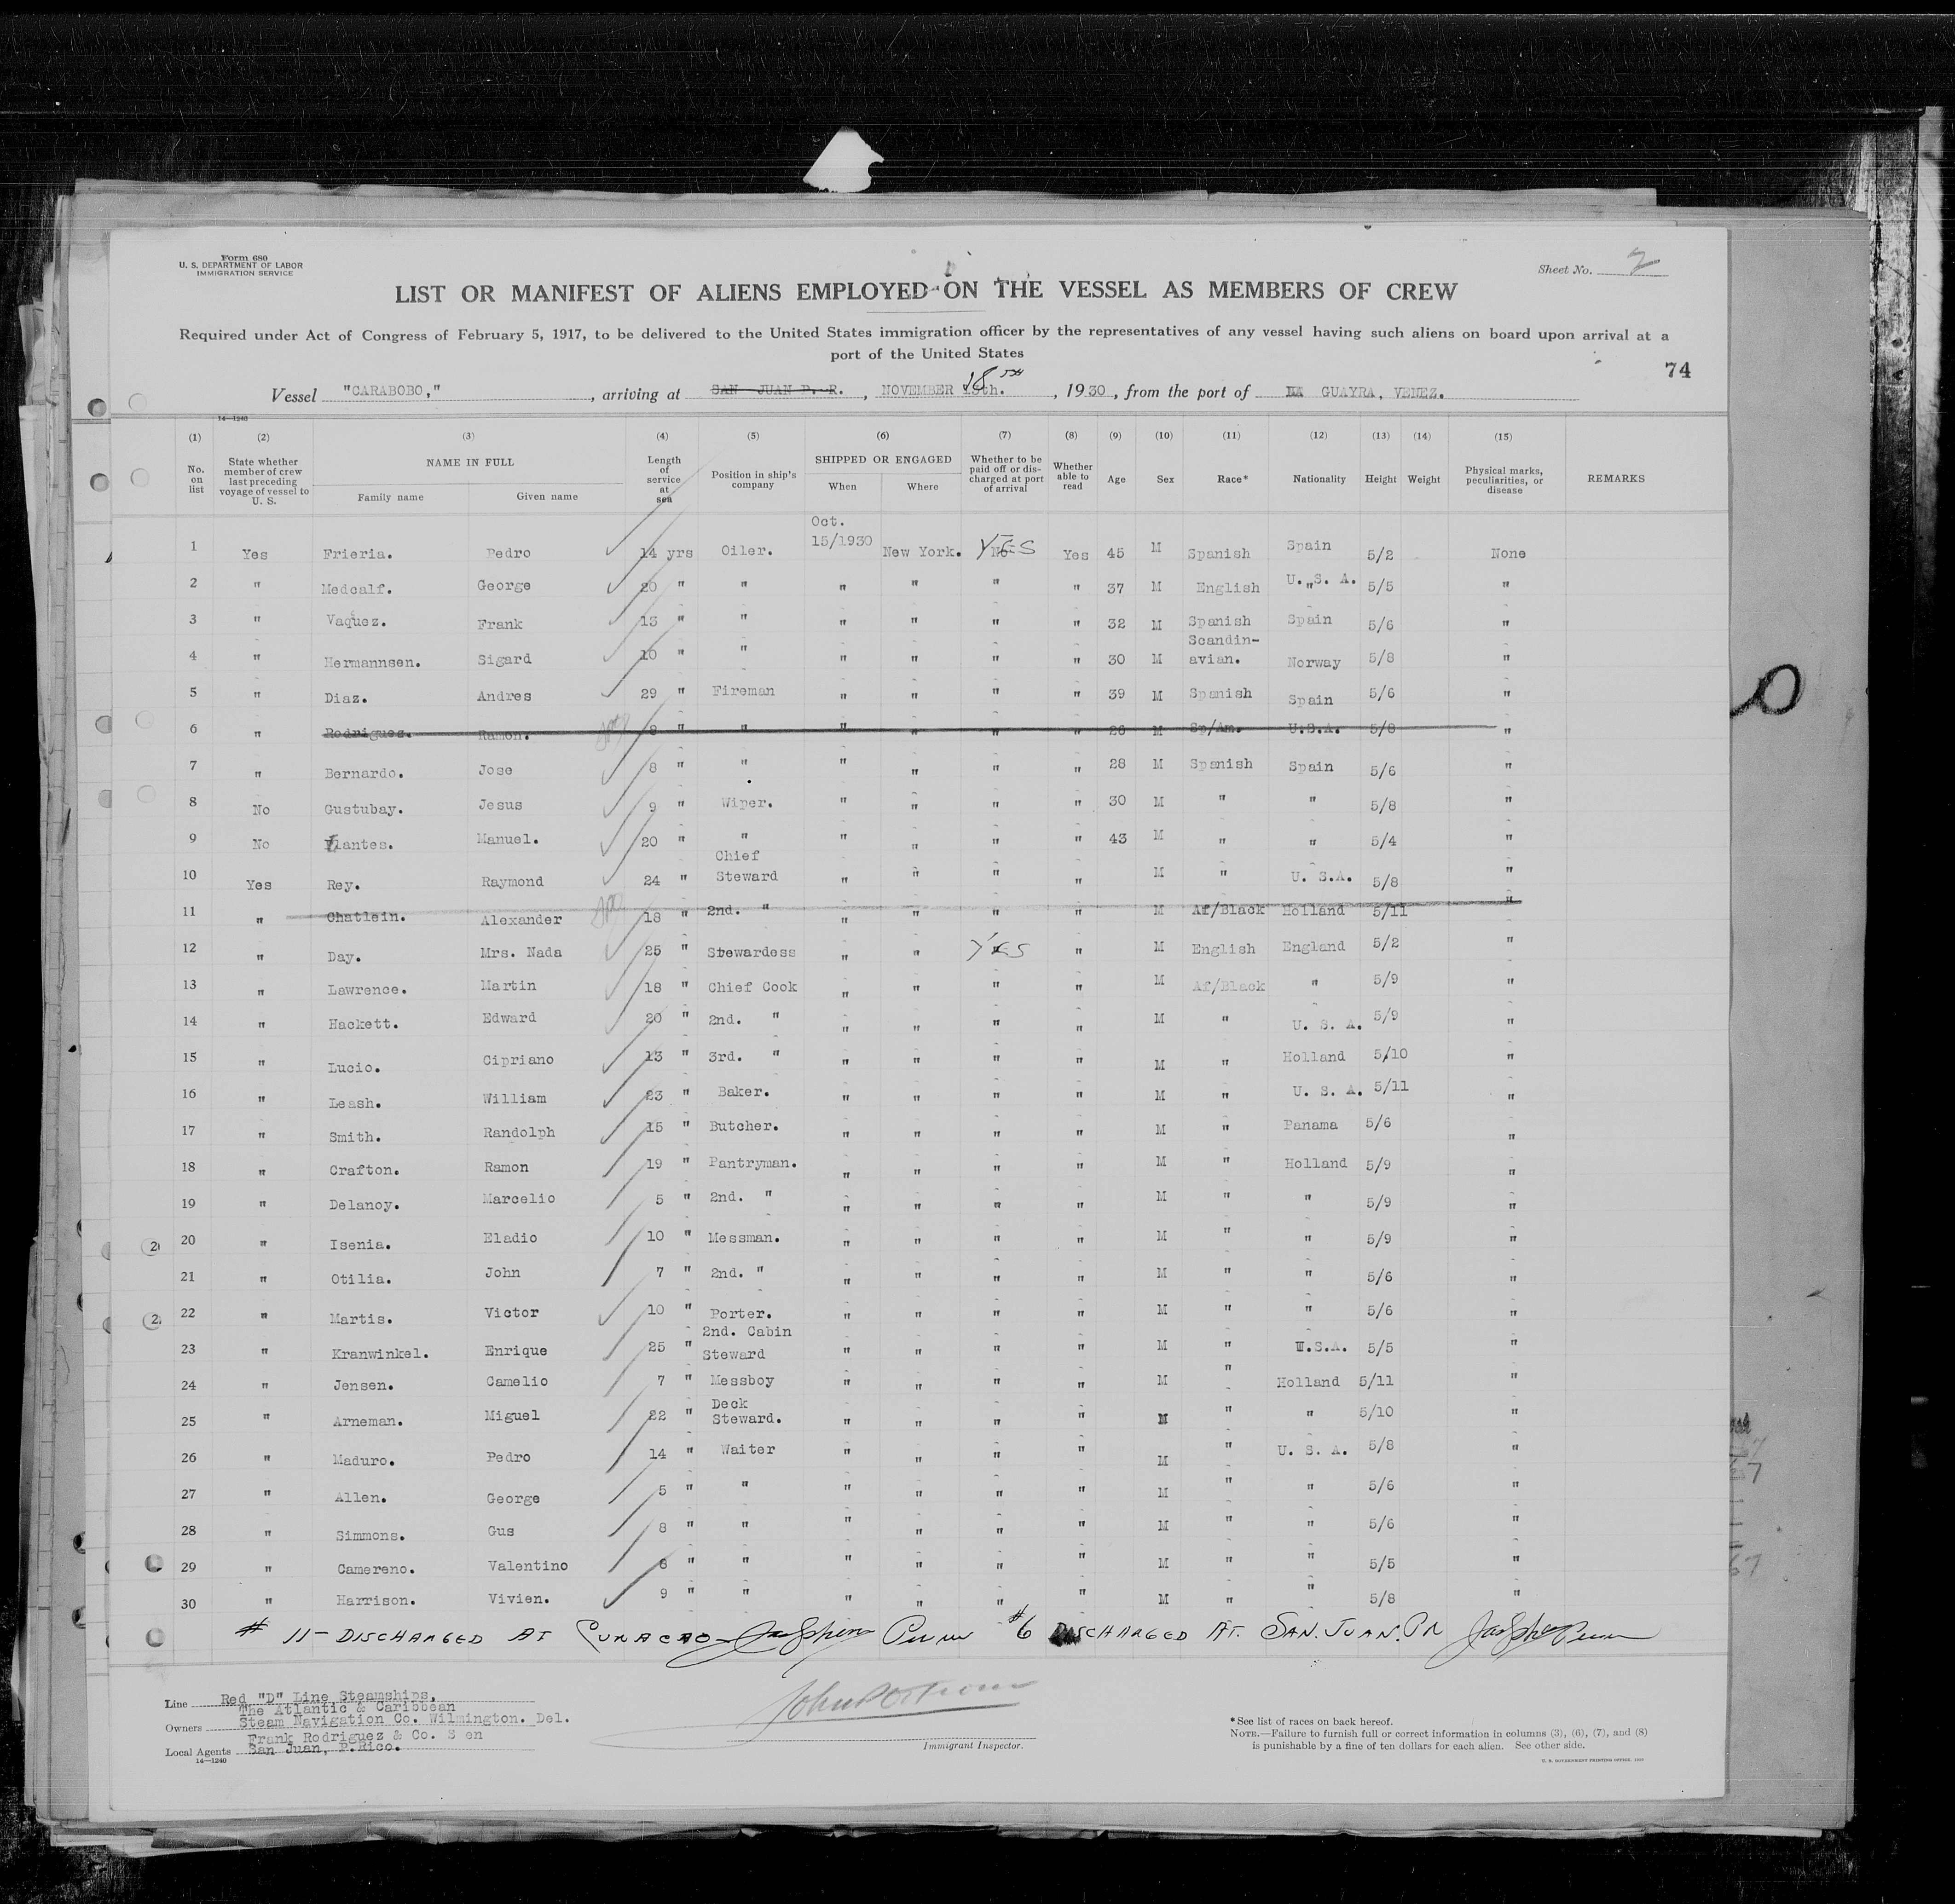 Form 680
U. S. DEPARTMENT OF LABOR
IMMIGRATION SERVICE
Sheet No. 2
LIST OR MANIFEST OF ALIENS EMPLOYED ON THE VESSEL AS MEMBERS OF CREW
Required under Act of Congress of February 5, 1917, to be delivered to the United States immigration officer by the representatives of any vessel having such aliens on board upon arrival at a
port of the United States
74
Vessel "CARABOBO," , arriving at SAN JUAN P. R. , NOVEMBER 18TH , 1930 , from the port of LA GUAYRA, VENEZ.
14—1240
(1) (2) (3) (4) (5) (6) (7) (8) (9) (10) (11) (12) (13) (14) (15)
No. on list State whether member of crew last preceding voyage of vessel to U. S. NAME IN FULL Family name Given name Length of service at sea Position in ship's company SHIPPED OR ENGAGED When Where Whether to be paid off or discharged at port of arrival Whether able to read Age Sex Race* Nationality Height Weight Physical marks, peculiarities, or disease REMARKS
1 Yes Frieria. Pedro 14 yrs Oiler. Oct. 15/1930 New York. YES Yes 45 M Spanish Spain 5/2 None
2 " Medcalf. George 20 " " " " " " 37 M English U. S. A. 5/5 "
3 " Vaquez. Frank 13 " " " " " " 32 M Spanish Spain 5/6 "
4 " Hermannsen. Sigard 10 " " " " " " 30 M Scandin-avian. Norway 5/8 "
5 " Diaz. Andres 29 " Fireman " " " " 39 M Spanish Spain 5/6 "
6 " Rodriguez. Ramon. 8 " " " " " " 26 M Sp/Am. U.S.A. 5/8 "
7 " Bernardo. Jose 8 " " " " " " 28 M Spanish Spain 5/6 "
8 No Gustubay. Jesus 9 " Wiper. " " " " 30 M " " 5/8 "
9 No lantes. Manuel. 20 " " " " " " 43 M " " 5/4 "
10 Yes Rey. Raymond 24 " Chief Steward " " " " M " U. S.A. 5/8 "
11 " Chatlein. Alexander 18 " 2nd. " " " " " M Af/Black Holland 5/11 "
12 " Day. Mrs. Nada 25 " Stewardess " " YES " M English England 5/2 "
13 " Lawrence. Martin 18 " Chief Cook " " " " M Af/Black " 5/9 "
14 " Hackett. Edward 20 " 2nd. " " " " " M " U. S. A. 5/9 "
15 " Lucio. Cipriano 13 " 3rd. " " " " " M " Holland 5/10 "
16 " Leash. William 23 " Baker. " " " " M " U. S. A. 5/11 "
17 " Smith. Randolph 15 " Butcher. " " " " M " Panama 5/6 "
18 " Crafton. Ramon 19 " Pantryman. " " " " M " Holland 5/9 "
19 " Delanoy. Marcelio 5 " 2nd. " " " " " M " " 5/9 "
20 " Isenia. Eladio 10 " Messman. " " " " M " " 5/9 "
21 " Otilia. John 7 " 2nd. " " " " " M " " 5/6 "
22 " Martis. Victor 10 " Porter. " " " " M " " 5/6 "
23 " Kranwinkel. Enrique 25 " 2nd. Cabin Steward " " " " M " U.S.A. 5/5 "
24 " Jensen. Camelio 7 " Messboy " " " " M " Holland 5/11 "
25 " Arneman. Miguel 22 " Deck Steward. " " " " M " " 5/10 "
26 " Maduro. Pedro 14 " Waiter " " " " M " U. S. A. 5/8 "
27 " Allen. George 5 " " " " " " M " " 5/6 "
28 " Simmons. Gus 8 " " " " " " M " " 5/6 "
29 " Camereno. Valentino 6 " " " " " " M " " 5/5 "
30 " Harrison. Vivien. 9 " " " " " " M " " 5/8 "
# 11 - DISCHARGED AT CURACAO # 6 DISCHARGED AT. SAN. JUAN. PR
Line Red "D" Line Steamships.
Owners The Atlantic & Caribbean Steam Navigation Co. Wilmington. Del.
Local Agents Frank Rodriguez & Co. S en San Juan, P.Rico.
14—1240
Immigrant Inspector.
*See list of races on back hereof.
NOTE.—Failure to furnish full or correct information in columns (3), (6), (7), and (8)
is punishable by a fine of ten dollars for each alien. See other side.
U. S. GOVERNMENT PRINTING OFFICE